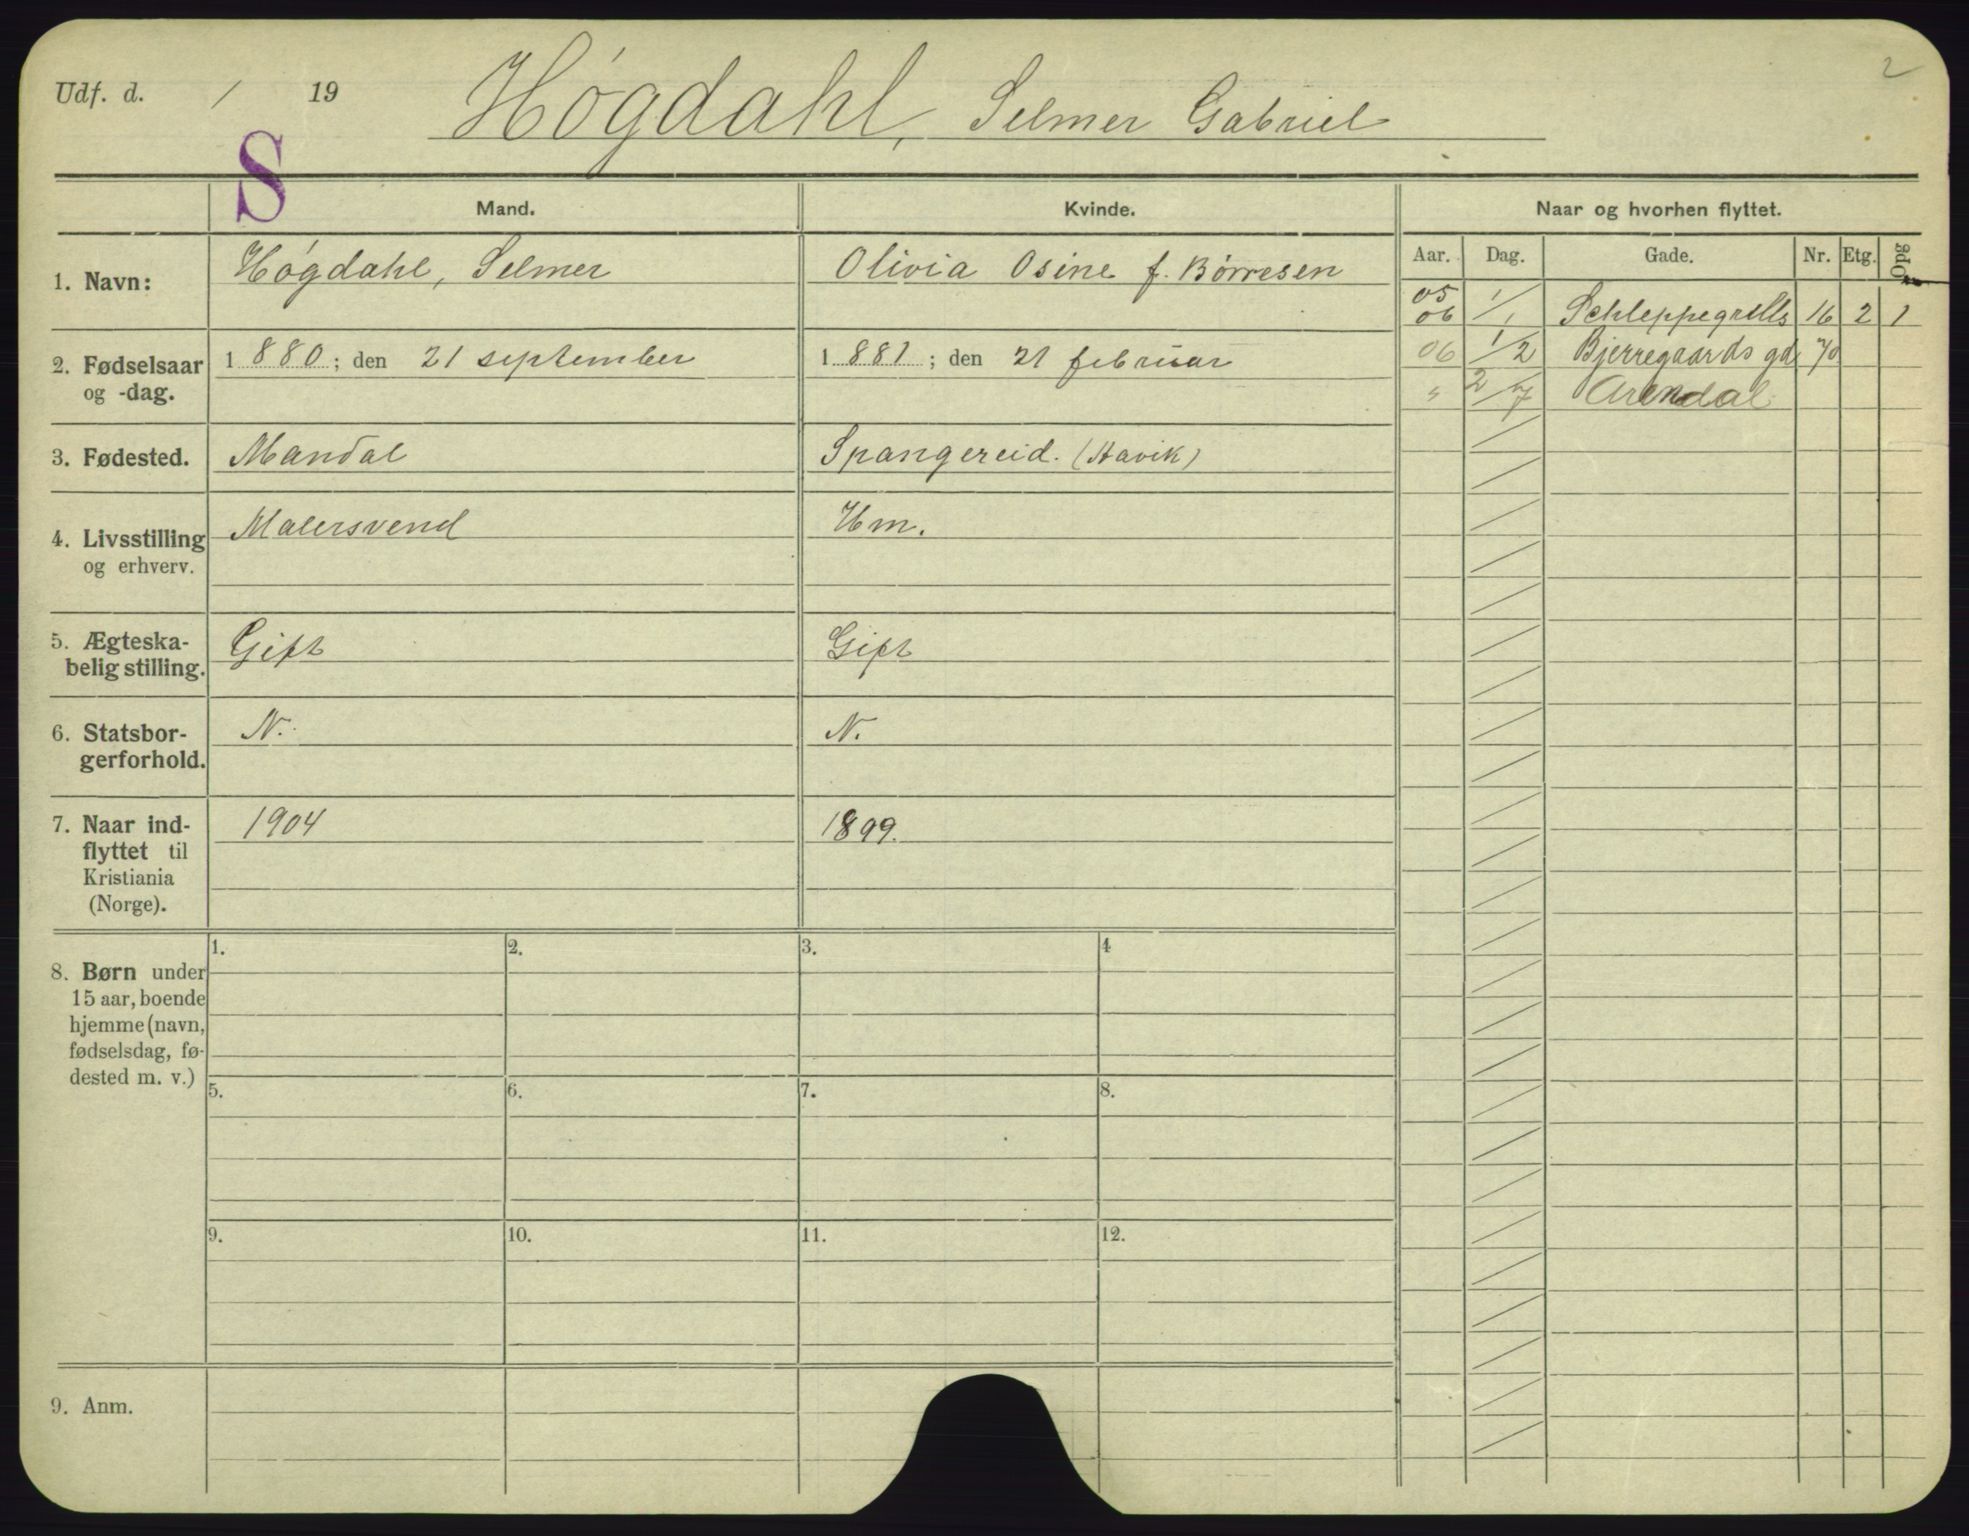 2
Udf. d. / 19 Høgdahl, Selmer Gabriel
S
Mand. Kvinde. Naar og hvorhen flyttet.
Aar. Dag. Gade. Nr. Etg. Opg
1. Navn: Høgdahl, Selmer Olivia Osine f. Børresen
05
06 1/1 Schleppegrells 16 2 1
2. Fødselsaar og -dag. 1 880; den 21 september 1 881; den 21 februar
06 1/2 Bjerregaards gd 70
" 2/7 Arendal
3. Fødested. Mandal Spangereid. (Aavik)
4. Livsstilling og erhverv. Malersvend Hm.
5. Ægteska-
belig stilling. Gift Gift
6. Statsbor-
gerforhold. N. N.
7. Naar ind-
flyttet til
Kristiania
(Norge). 1904 1899.
8. Børn under
15 aar, boende
hjemme (navn,
fødselsdag, fø-
dested m. v.)
1. 2. 3. 4
5. 6. 7. 8.
9. 10. 11. 12.
9. Anm.